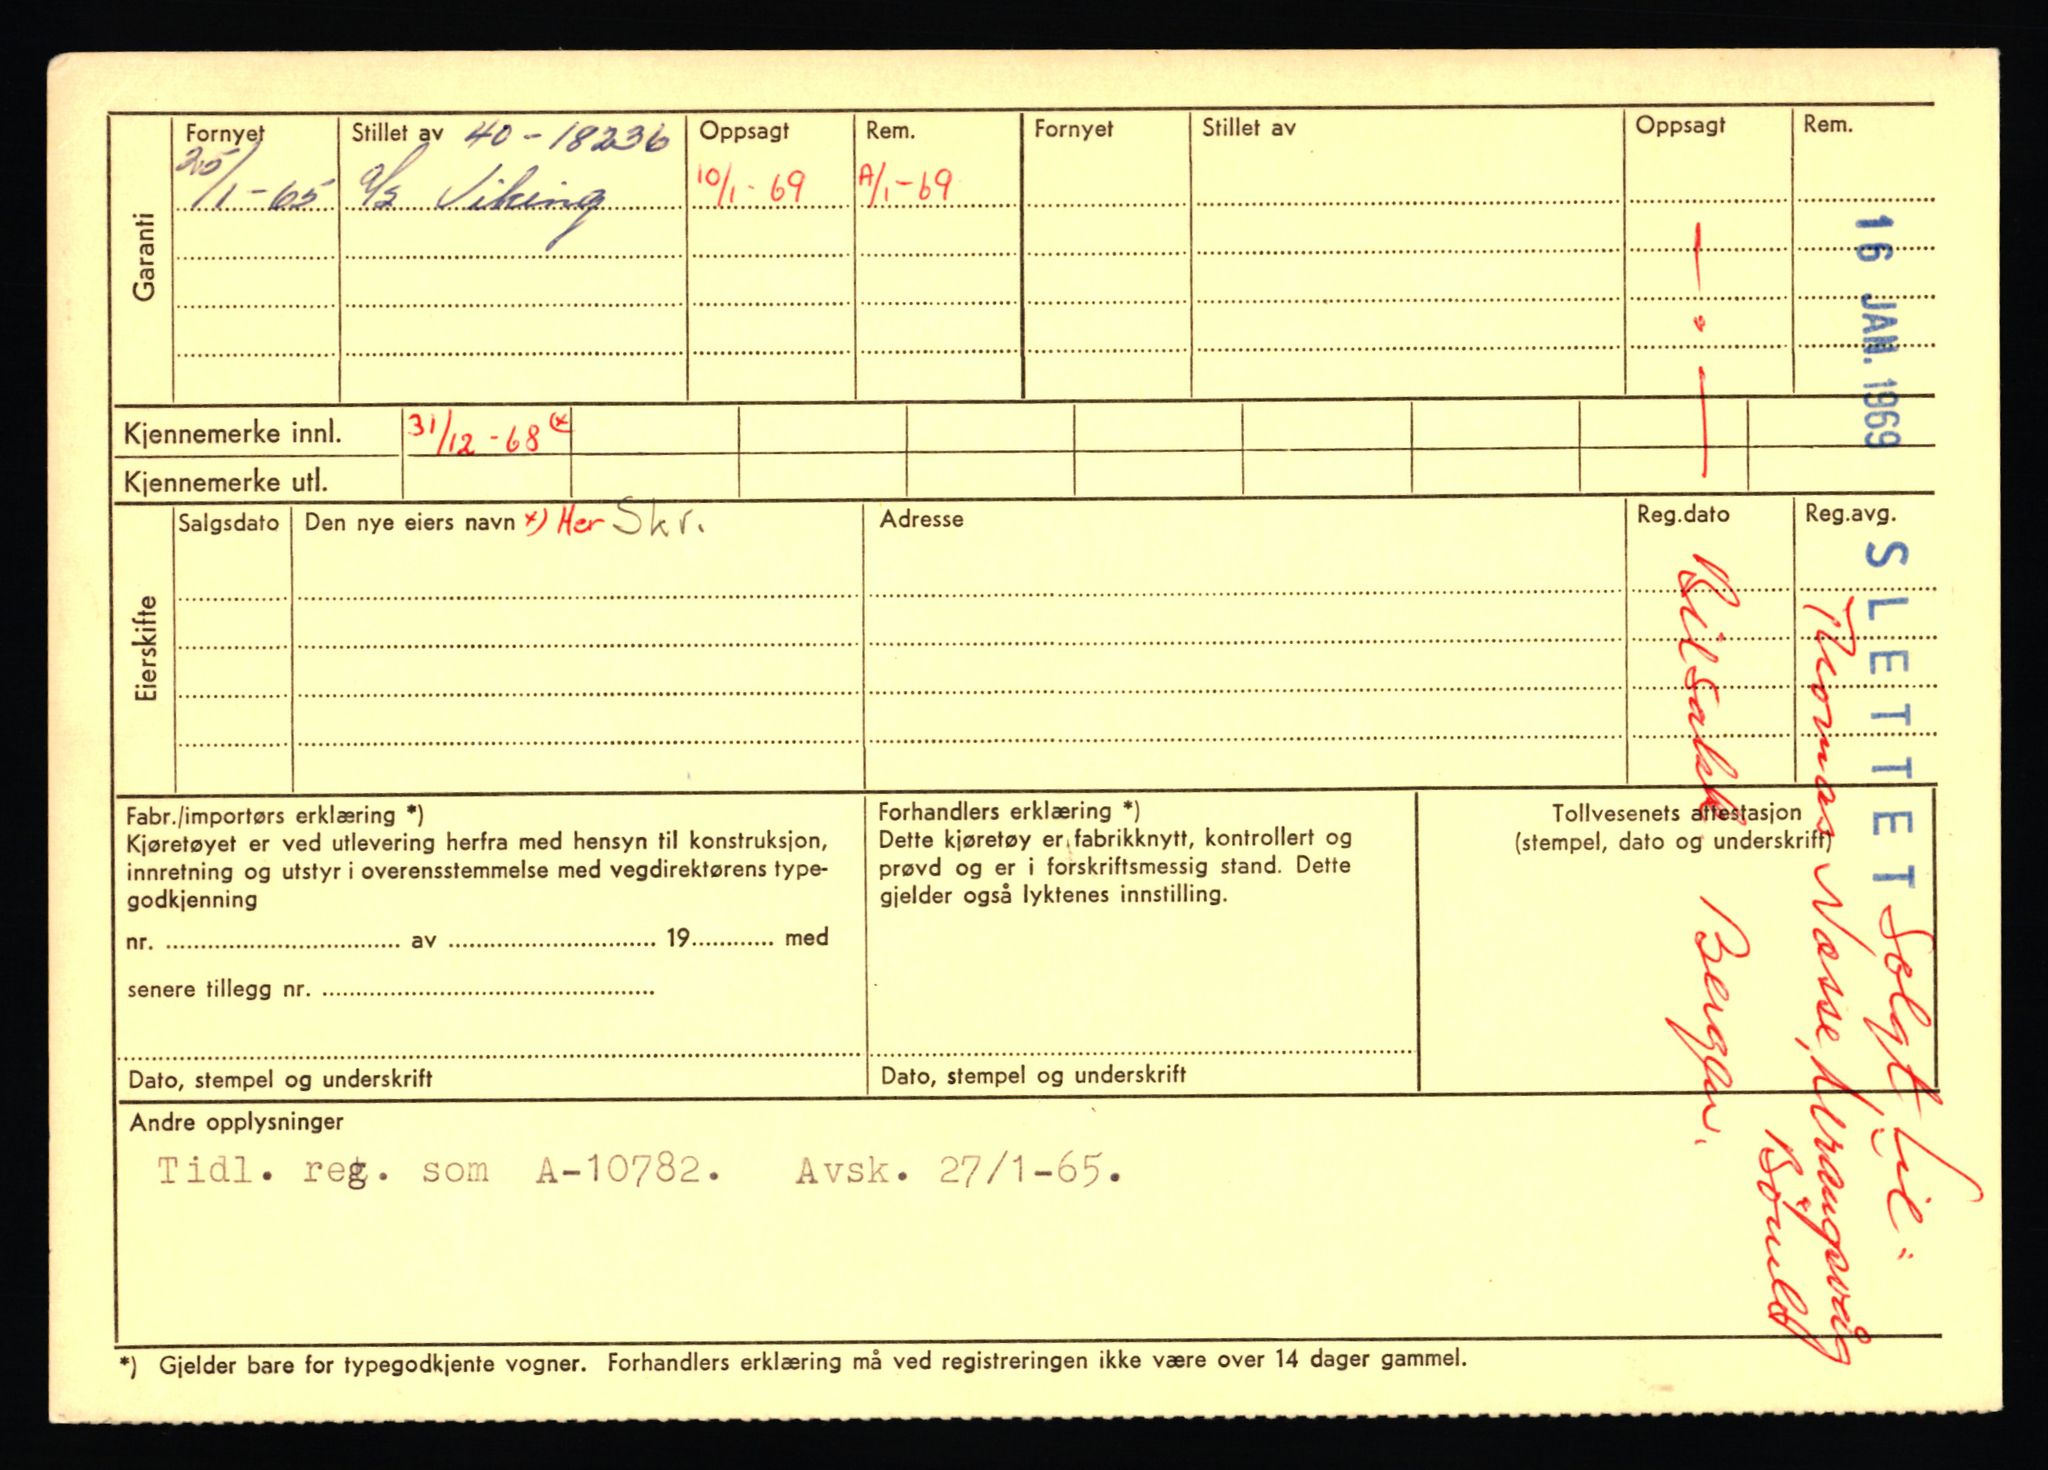 Garanti
Fornyet Stillet av 40-18236 Oppsagt Rem. Fornyet Stillet av Oppsagt Rem.
25/1-65 A/S Viking 10/1-69 A/1-69
Kjennemerke innl. 31/12-68 *)
Kjennemerke utl.
Eierskifte
Salgsdato Den nye eiers navn *) Her Skr. Adresse Reg.dato Reg.avg.
Fabr./importørs erklæring *)
Kjøretøyet er ved utlevering herfra med hensyn til konstruksjon,
innretning og utstyr i overensstemmelse med vegdirektørens type-
godkjenning
nr. ........ av ........ 19........ med
senere tillegg nr. ........
Dato, stempel og underskrift
Forhandlers erklæring *)
Dette kjøretøy er fabrikknytt, kontrollert og
prøvd og er i forskriftsmessig stand. Dette
gjelder også lyktenes innstilling.
Dato, stempel og underskrift
Tollvesenets attestasjon
(stempel, dato og underskrift)
Andre opplysninger
Tidl. reg. som A-10782. Avsk. 27/1-65.
*) Gjelder bare for typegodkjente vogner. Forhandlers erklæring må ved registreringen ikke være over 14 dager gammel.
16 JAN. 1969
SLETTET
Solgt til:
Thomas Næsse, Urangsvåg
Bømlo
Bergen.